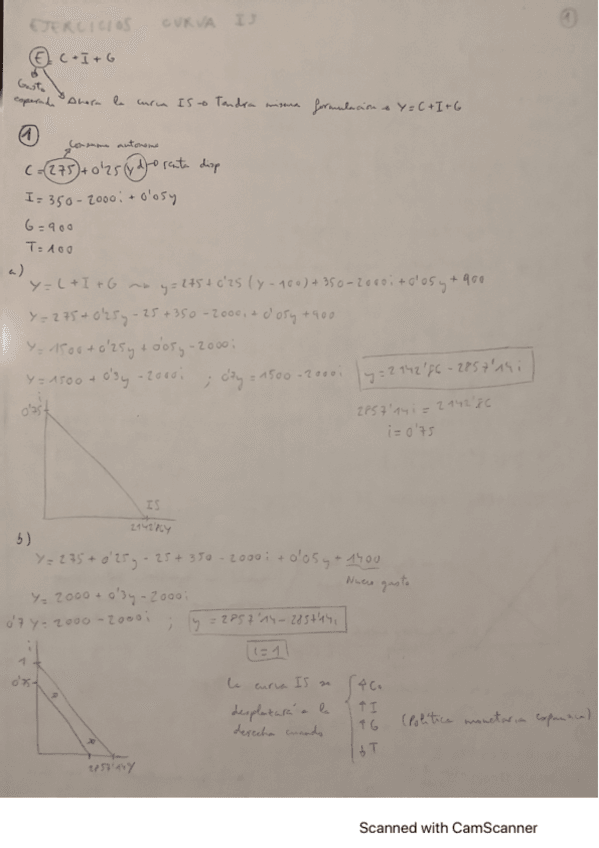 EJERCICIOS CURVA IS
1
E = C + I + G
Gasto
esperado Ahora la curva IS → Tendrá misma formulación → Y = C + I + G
1
Consumo autónomo
C = 275 + 0'25 (yd) → renta disp
I = 350 - 2000i + 0'05y
G = 900
T = 100
a)
Y = C + I + G → y = 275 + 0'25 (y - 100) + 350 - 2000i + 0'05y + 900
Y = 275 + 0'25y - 25 + 350 - 2000i + 0'05y + 900
Y = 1500 + 0'25y + 0'05y - 2000i
Y = 1500 + 0'3y - 2000i ; 0'7y = 1500 - 2000i y = 2142'86 - 2857'14i
2857'14i = 2142'86
i = 0'75
i
0'75
IS
2142'86 Y
b)
Y = 275 + 0'25y - 25 + 350 - 2000i + 0'05y + 1400
Nuevo gasto
Y = 2000 + 0'3y - 2000i
0'7 Y = 2000 - 2000i ; y = 2857'14 - 2857'14i
i = 1
i
1
0'75
2857'14 Y
La curva IS se
desplazará a la
derecha cuando
↑ Co
↑ I
↑ G (Política monetaria expansiva)
↓ T
Scanned with CamScanner